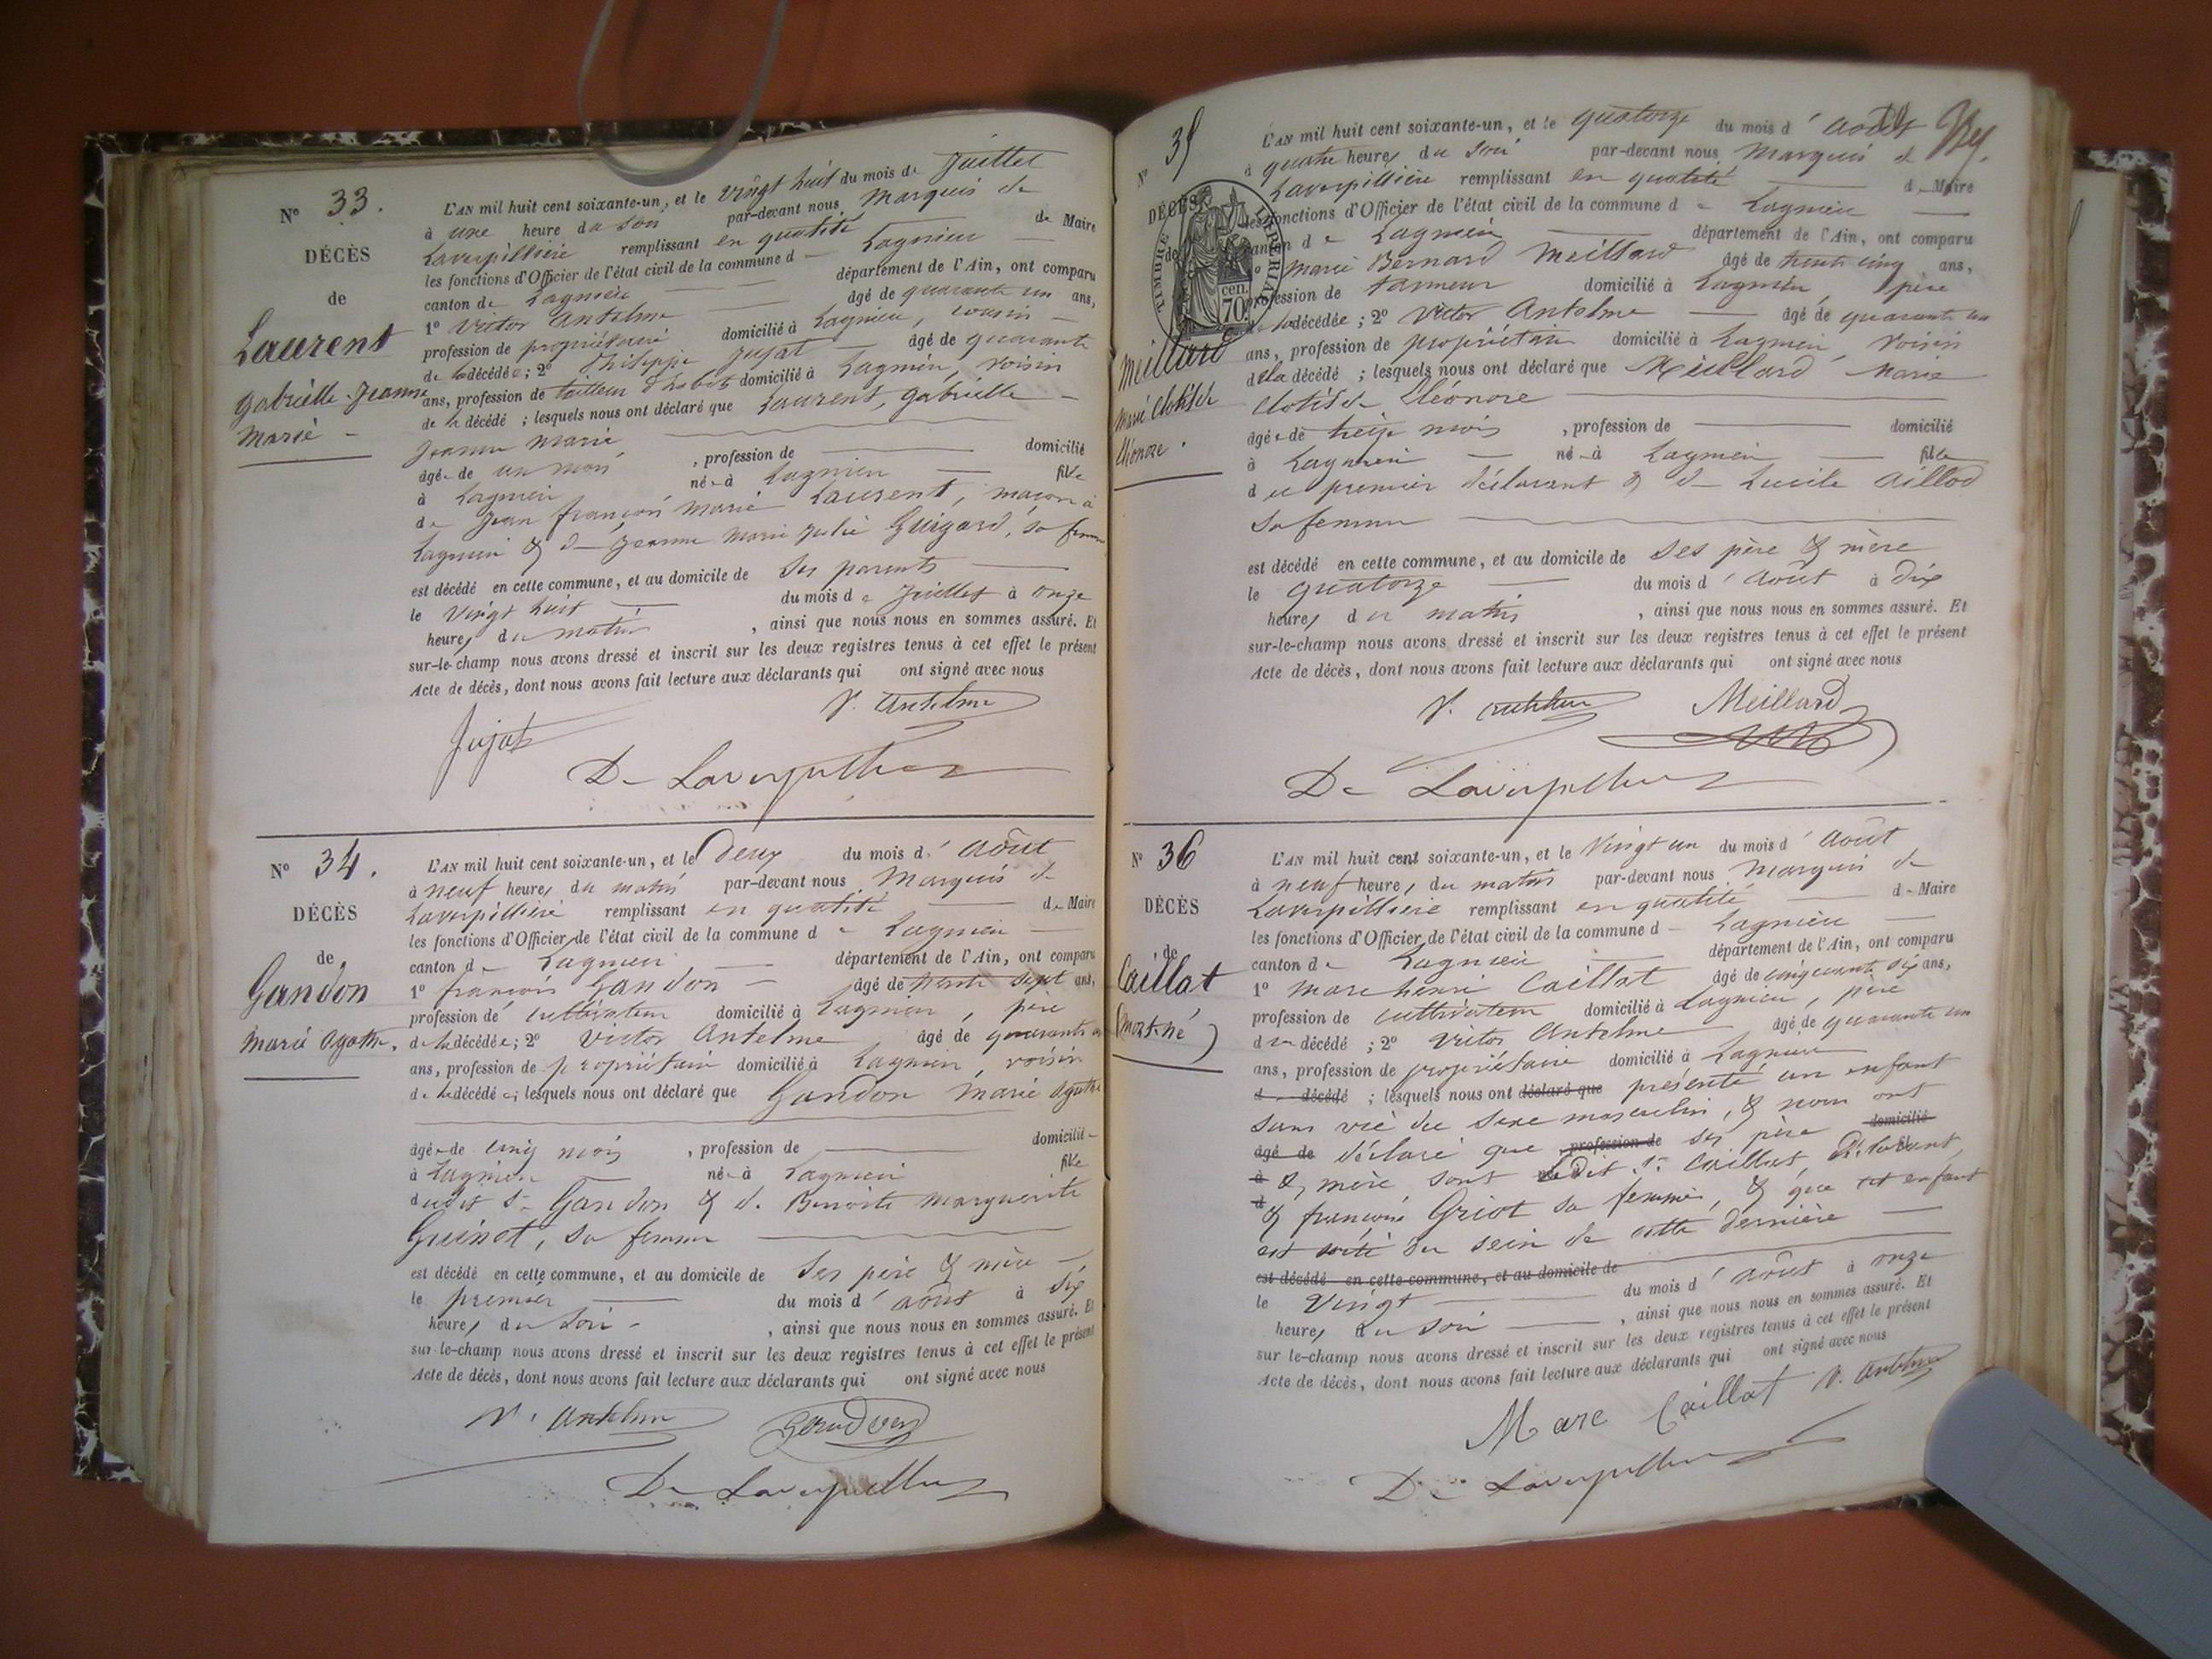 N° 33.
DÉCÈS
de
Laurent
Gabrielle Jeanne
Marie
L'AN mil huit cent soixante-un, et le vingt huit du mois de Juillet
à une heure du soir par-devant nous Marquis de
Laverpillière remplissant en qualité de Maire
les fonctions d'Officier de l'état civil de la commune de Lagnieu
canton de Lagnieu département de l'Ain, ont comparu
1° Victor Anselme âgé de quarante un ans,
profession de propriétaire domicilié à Lagnieu, cousin
de la décédée; 2° Philippe Jujat âgé de quarante
ans, profession de tailleur d'habits domicilié à Lagnieu, voisin
de la décédé ; lesquels nous ont déclaré que Laurent, Gabrielle
Jeanne Marie
âgée de un mois , profession de domicilié
à Lagnieu née à Lagnieu fille
de Jean françois Marie Laurent, maçon à
Lagnieu & de Jeanne Marie Julie Guigard, sa femme
est décédé en cette commune, et au domicile de ses parents
le vingt huit du mois de Juillet à onze
heures du matin , ainsi que nous nous en sommes assuré. Et
sur-le-champ nous avons dressé et inscrit sur les deux registres tenus à cet effet le présent
Acte de décès, dont nous avons fait lecture aux déclarants qui ont signé avec nous
V. Anselme
Jujat
De Laverpillière
N° 34.
DÉCÈS
de
Gandon
Marie Agathe.
L'AN mil huit cent soixante-un, et le deux du mois d'août
à neuf heures du matin par-devant nous Marquis de
Laverpillière remplissant en qualité de Maire
les fonctions d'Officier de l'état civil de la commune de Lagnieu
canton de Lagnieu département de l'Ain, ont comparu
1° françois Gandon âgé de trente sept ans,
profession de cultivateur domicilié à Lagnieu, père
de la décédée; 2° Victor Anselme âgé de quarante un
ans, profession de propriétaire domicilié à Lagnieu, voisin
de la décédée; lesquels nous ont déclaré que Gandon Marie Agathe
âgée de cinq mois , profession de domicilié
à Lagnieu née à Lagnieu fille
dudit Sr Gandon & d. Benoite Marguerite
Guinot, sa femme
est décédé en cette commune, et au domicile de ses père & mère
le premier du mois d'août à dix
heures du soir , ainsi que nous nous en sommes assuré. Et
sur-le-champ nous avons dressé et inscrit sur les deux registres tenus à cet effet le présent
Acte de décès, dont nous avons fait lecture aux déclarants qui ont signé avec nous
V. Anselme Gandon
De Laverpillière
N° 35
DÉCÈS
de
TIMBRE IMPERIAL
70 cen.
Meillard
Marie Clotilde
Eléonore.
L'AN mil huit cent soixante-un, et le quatorze du mois d'août
à quatre heures du soir par-devant nous Marquis de
Laverpillière remplissant en qualité de Maire
les fonctions d'Officier de l'état civil de la commune de Lagnieu
canton de Lagnieu département de l'Ain, ont comparu
1° Marie Bernard Meillard âgé de trente cinq ans,
profession de tanneur domicilié à Lagnieu, père
de la décédée; 2° Victor Anselme âgé de quarante un
ans, profession de propriétaire domicilié à Lagnieu, voisin
de la décédé ; lesquels nous ont déclaré que Meillard Marie
Clotilde Eléonore
âgée de treize mois , profession de domicilié
à Lagnieu née à Lagnieu fille
du premier déclarant & de Lucile Aillod
sa femme
est décédé en cette commune, et au domicile de ses père & mère
le quatorze du mois d'août à dix
heures du matin , ainsi que nous nous en sommes assuré. Et
sur-le-champ nous avons dressé et inscrit sur les deux registres tenus à cet effet le présent
Acte de décès, dont nous avons fait lecture aux déclarants qui ont signé avec nous
V. Anselme Meillard
De Laverpillière
N° 36
DÉCÈS
de
Caillat
(Mort-né)
L'AN mil huit cent soixante-un, et le vingt un du mois d'août
à neuf heures du matin par-devant nous Marquis de
Laverpillière remplissant en qualité de Maire
les fonctions d'Officier de l'état civil de la commune de Lagnieu
canton de Lagnieu département de l'Ain, ont comparu
1° Marc henri Caillat âgé de cinquante six ans,
profession de cultivateur domicilié à Lagnieu, père
du décédé ; 2° Victor Anselme âgé de quarante un
ans, profession de propriétaire domicilié à Lagnieu
d décédé ; lesquels nous ont déclaré que présenté un enfant
sans vie du sexe masculin, & nous ont
âgé de déclaré que profession de ses père domicilié
à & mère sont ledit Sr Caillat, Déclarant,
d & françoise Griot sa femme, & que cet enfant
est sorti du sein de cette dernière
est décédé en cette commune, et au domicile de
le vingt du mois d'août à onze
heures du soir , ainsi que nous nous en sommes assuré. Et
sur-le-champ nous avons dressé et inscrit sur les deux registres tenus à cet effet le présent
Acte de décès, dont nous avons fait lecture aux déclarants qui ont signé avec nous
Marc Caillat V. Anselme
De Laverpillière